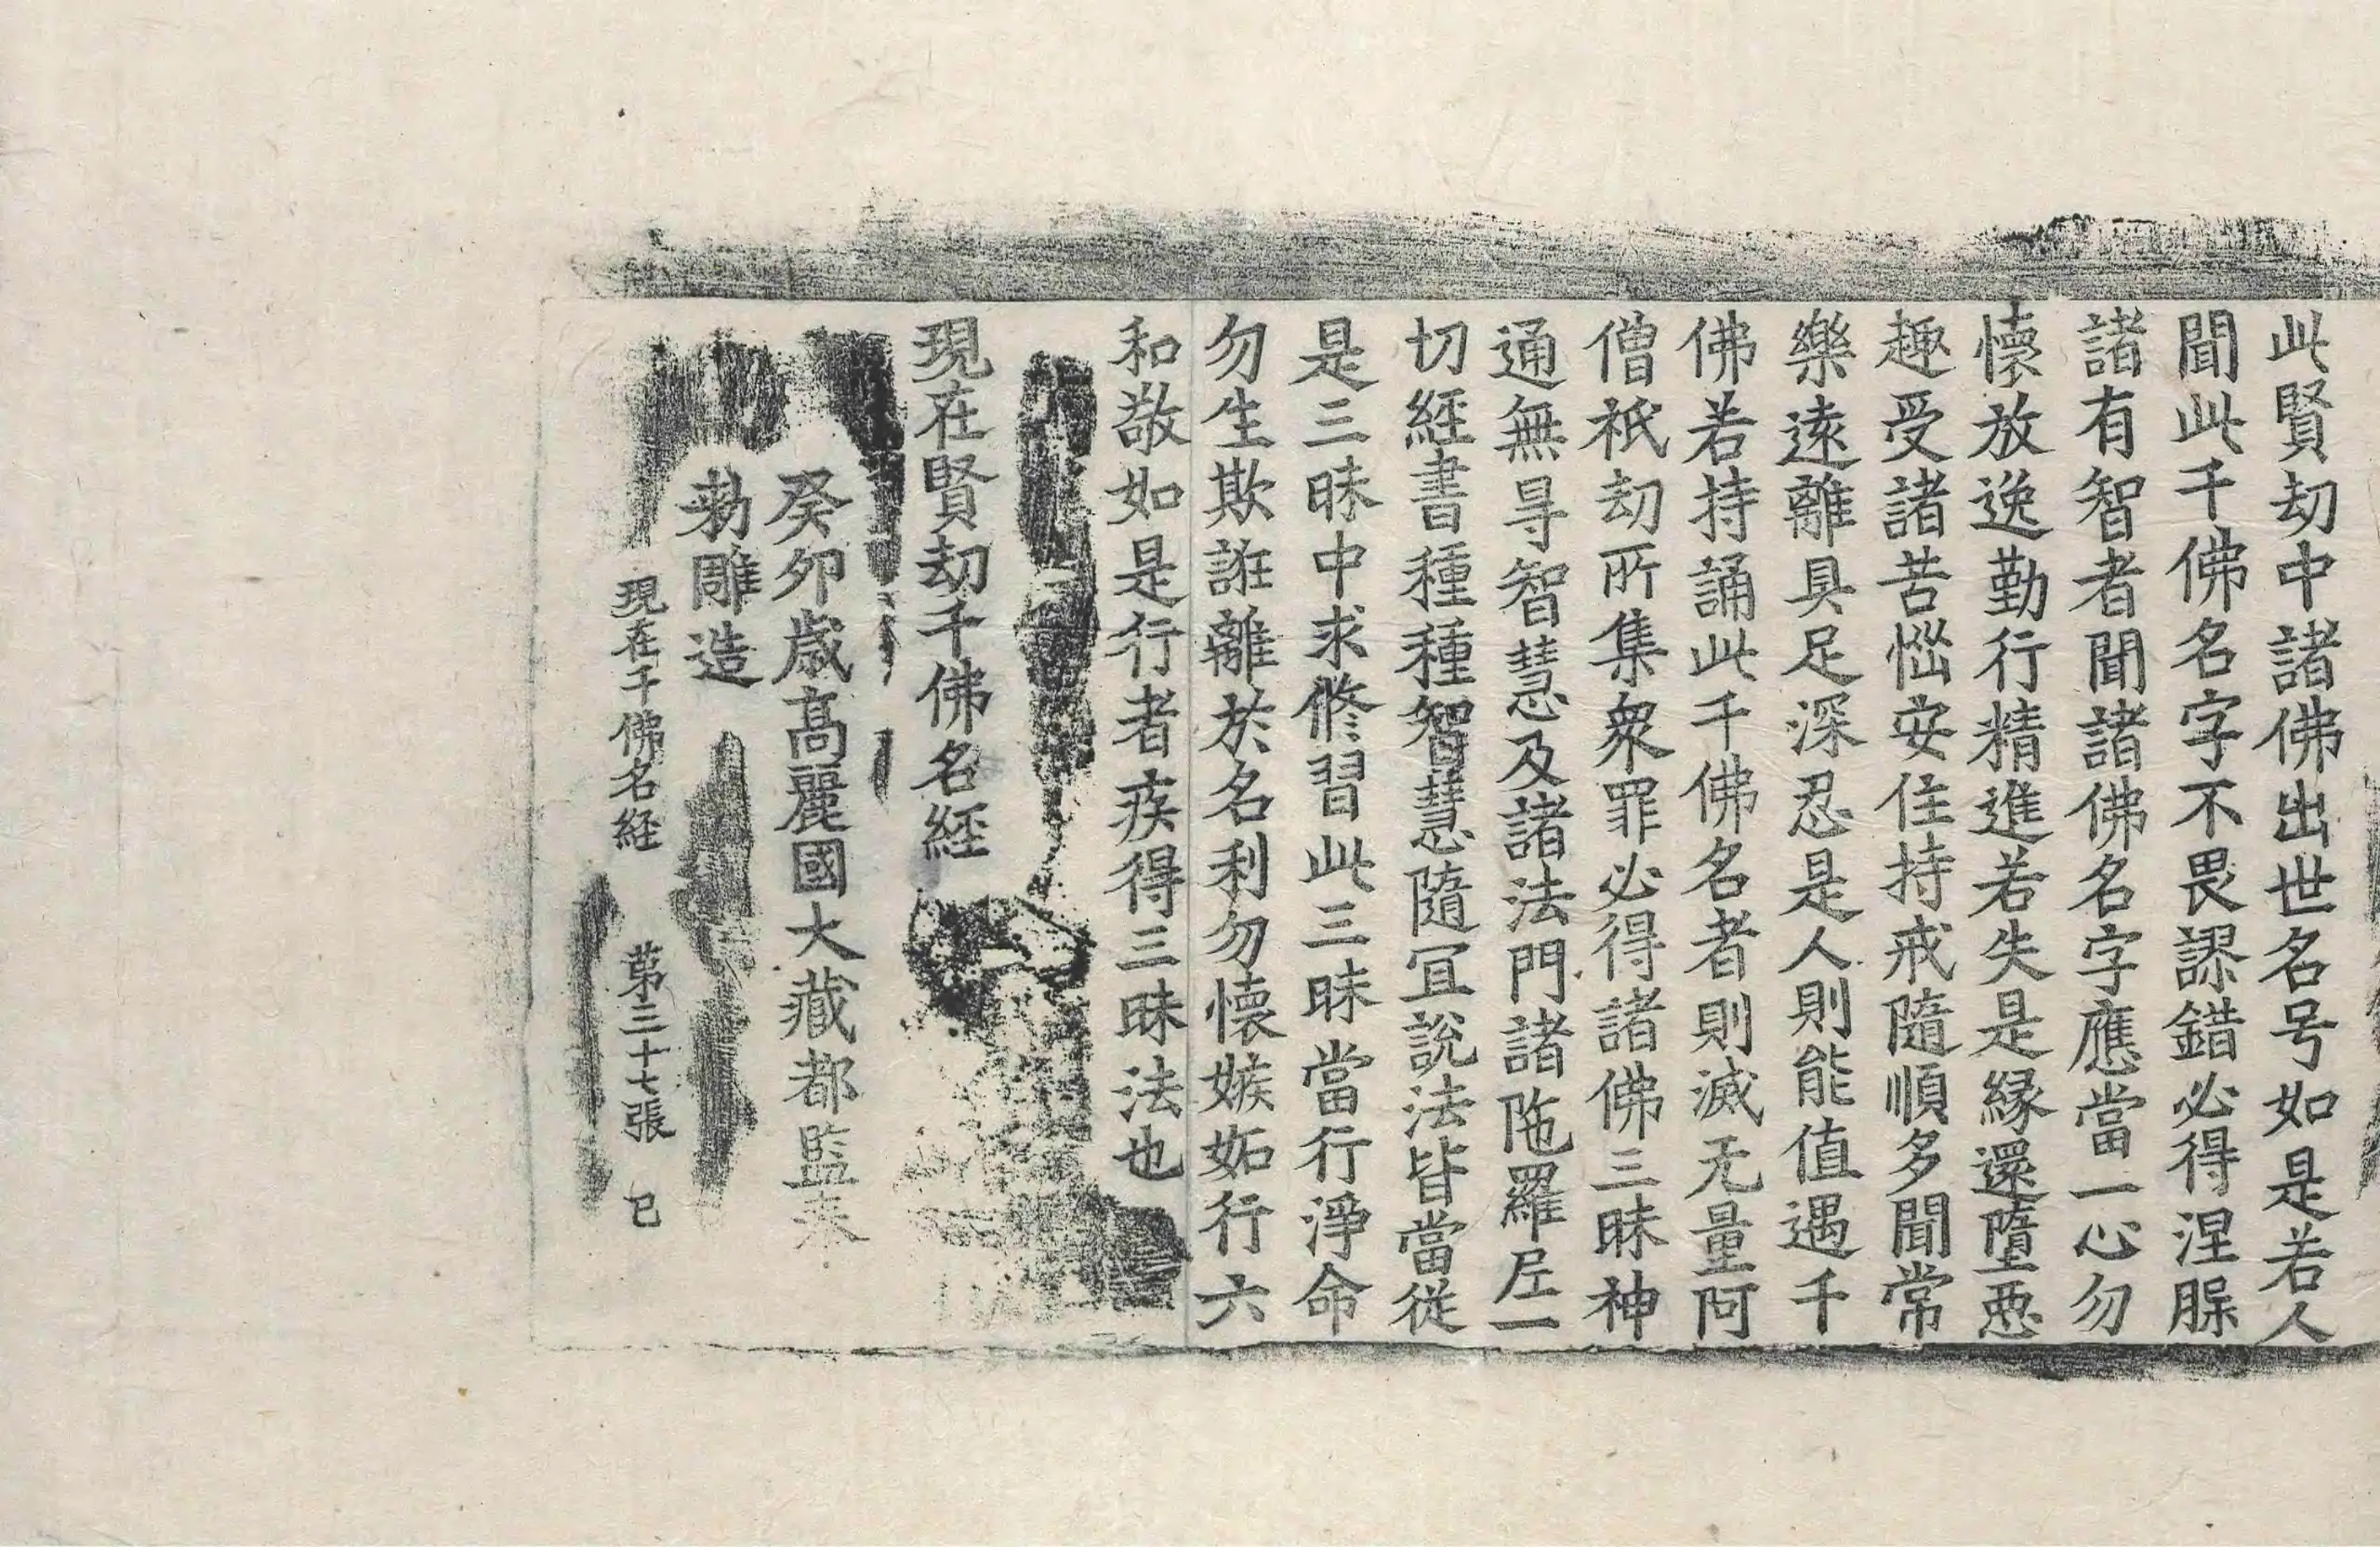 此賢劫中諸佛出世名号如是若人
聞此千佛名字不畏謬錯必得涅脲
諸有智者聞諸佛名字應當一心勿
懷放逸勤行精進若失是縁還墮惡
趣受諸苦惱安住持戒隨順多聞常
樂遠離具足深忍是人則能值遇千
佛若持誦此千佛名者則滅无量阿
僧祇劫所集衆罪必得諸佛三昧神
通無㝵智慧及諸法門諸陁羅尼一
切經書種種智慧隨冝說法皆當從
是三昧中求修習此三昧當行淨命
勿生欺誑離於名利勿懷嫉妬行六
和敬如是行者疾得三昧法也
現在賢劫千佛名經
癸卯歲高麗國大藏都監奉
勑雕造
現在千佛名経 第三十七張 已